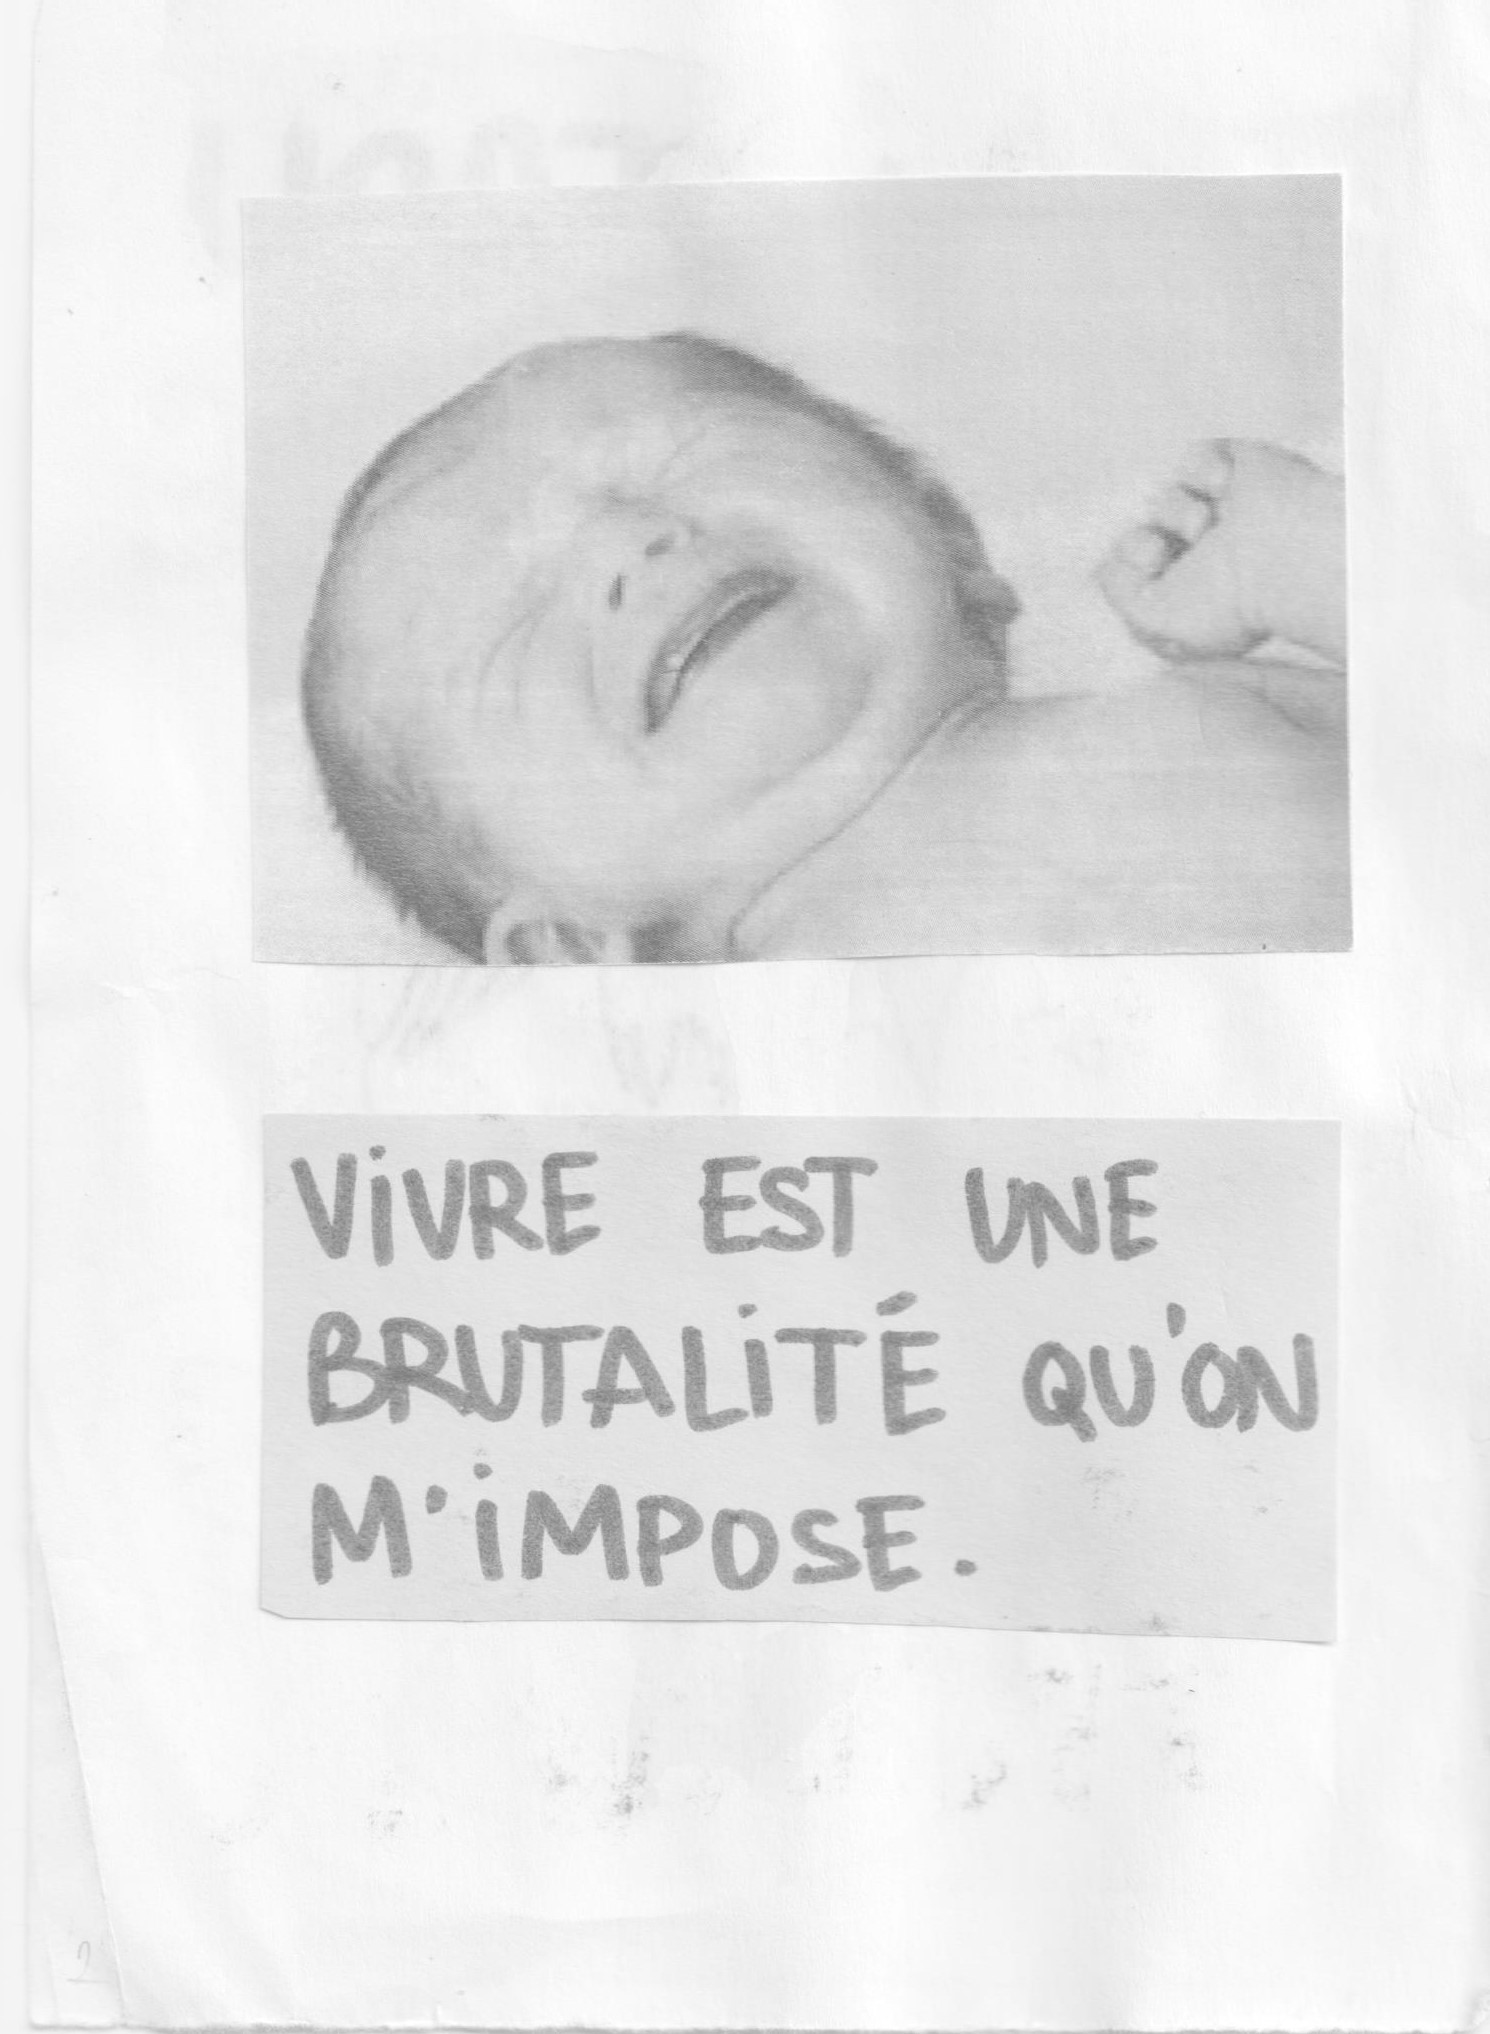 ViVRE EST UNE
BRUTALiTÉ QU'ON
M'iMPOSE.
2